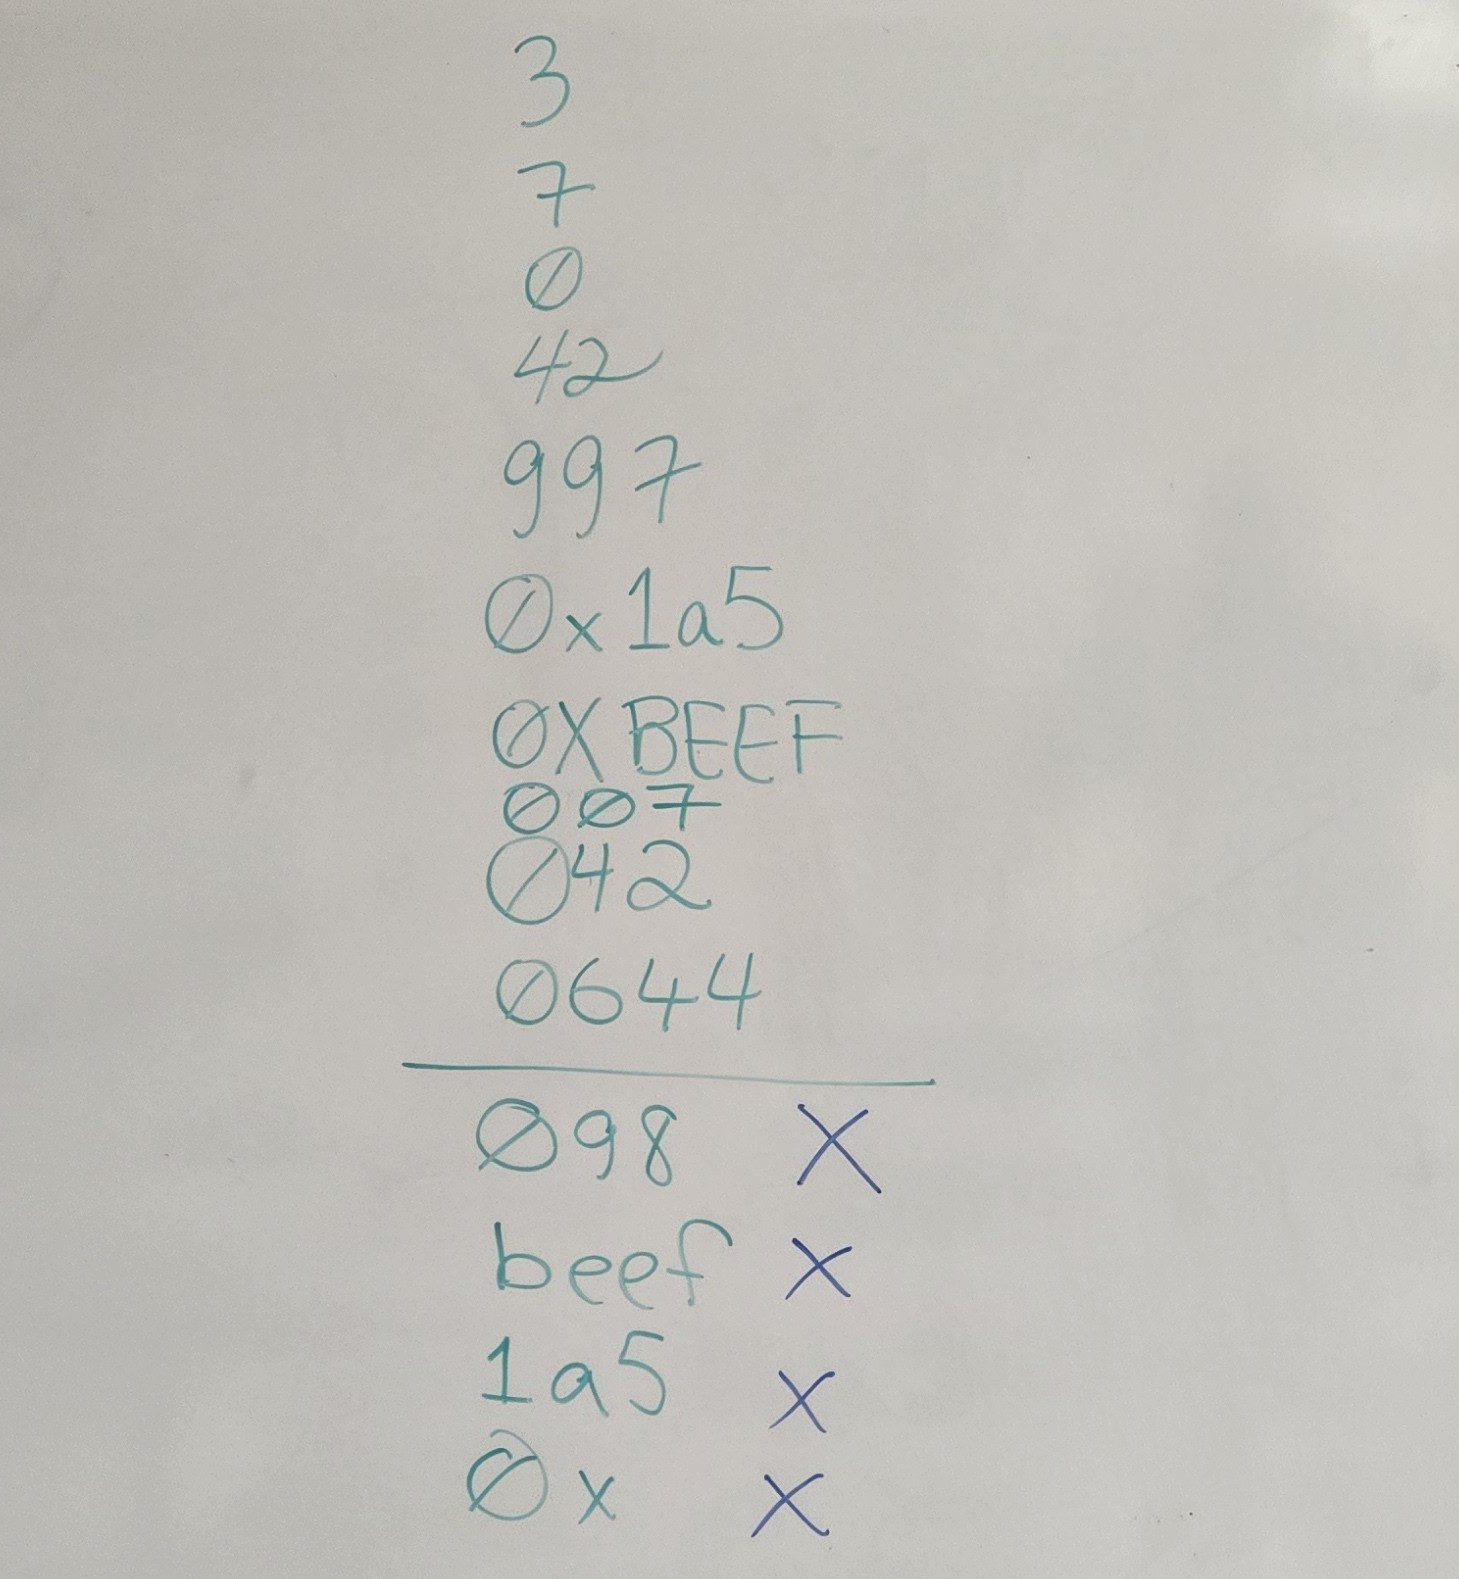 3
7
0
42
997
0x1a5
0XBEEF
007
042
0644
098 X
beef X
1a5 X
0x X